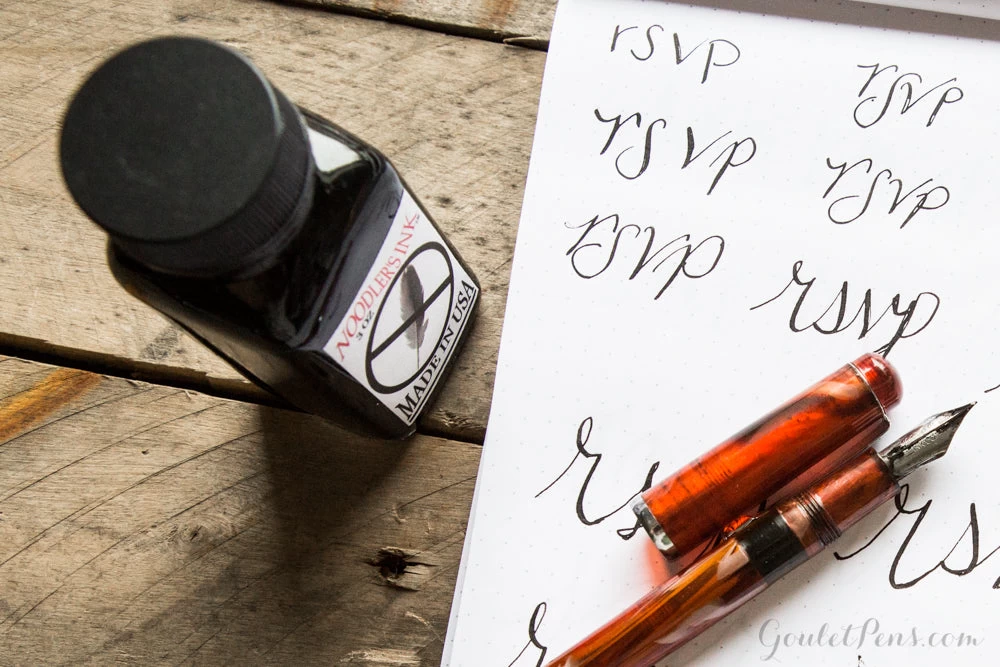 NOODLER'S INK
3 OZ
MADE IN USA
rsvp
rsvp
rsvp
rsvp
rsvp
rsvp
rs
rs
r
GouletPens.com